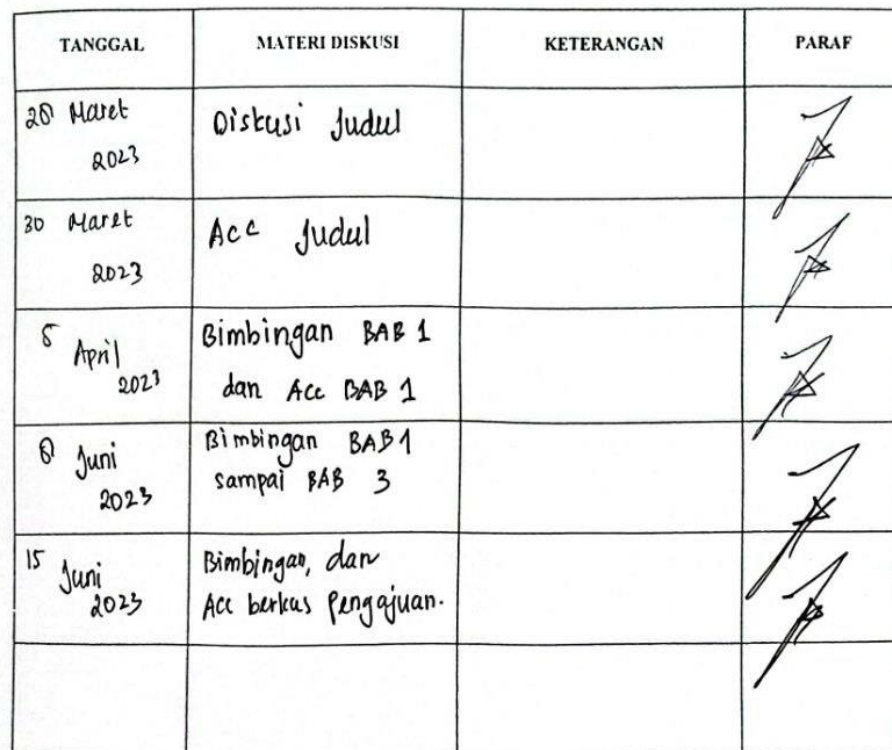 TANGGAL MATERI DISKUSI KETERANGAN PARAF
Maret
2023
Diskusi Judul
30 Maret
2023
Acc Judul
April
2023
Bimbingan BAB 1
dan Acc BAB 1
Juni
2023
Bimbingan BAB 1
sampai BAB 3
15 Juni
2023
Bimbingan, dan
Acc berkas Pengajuan.